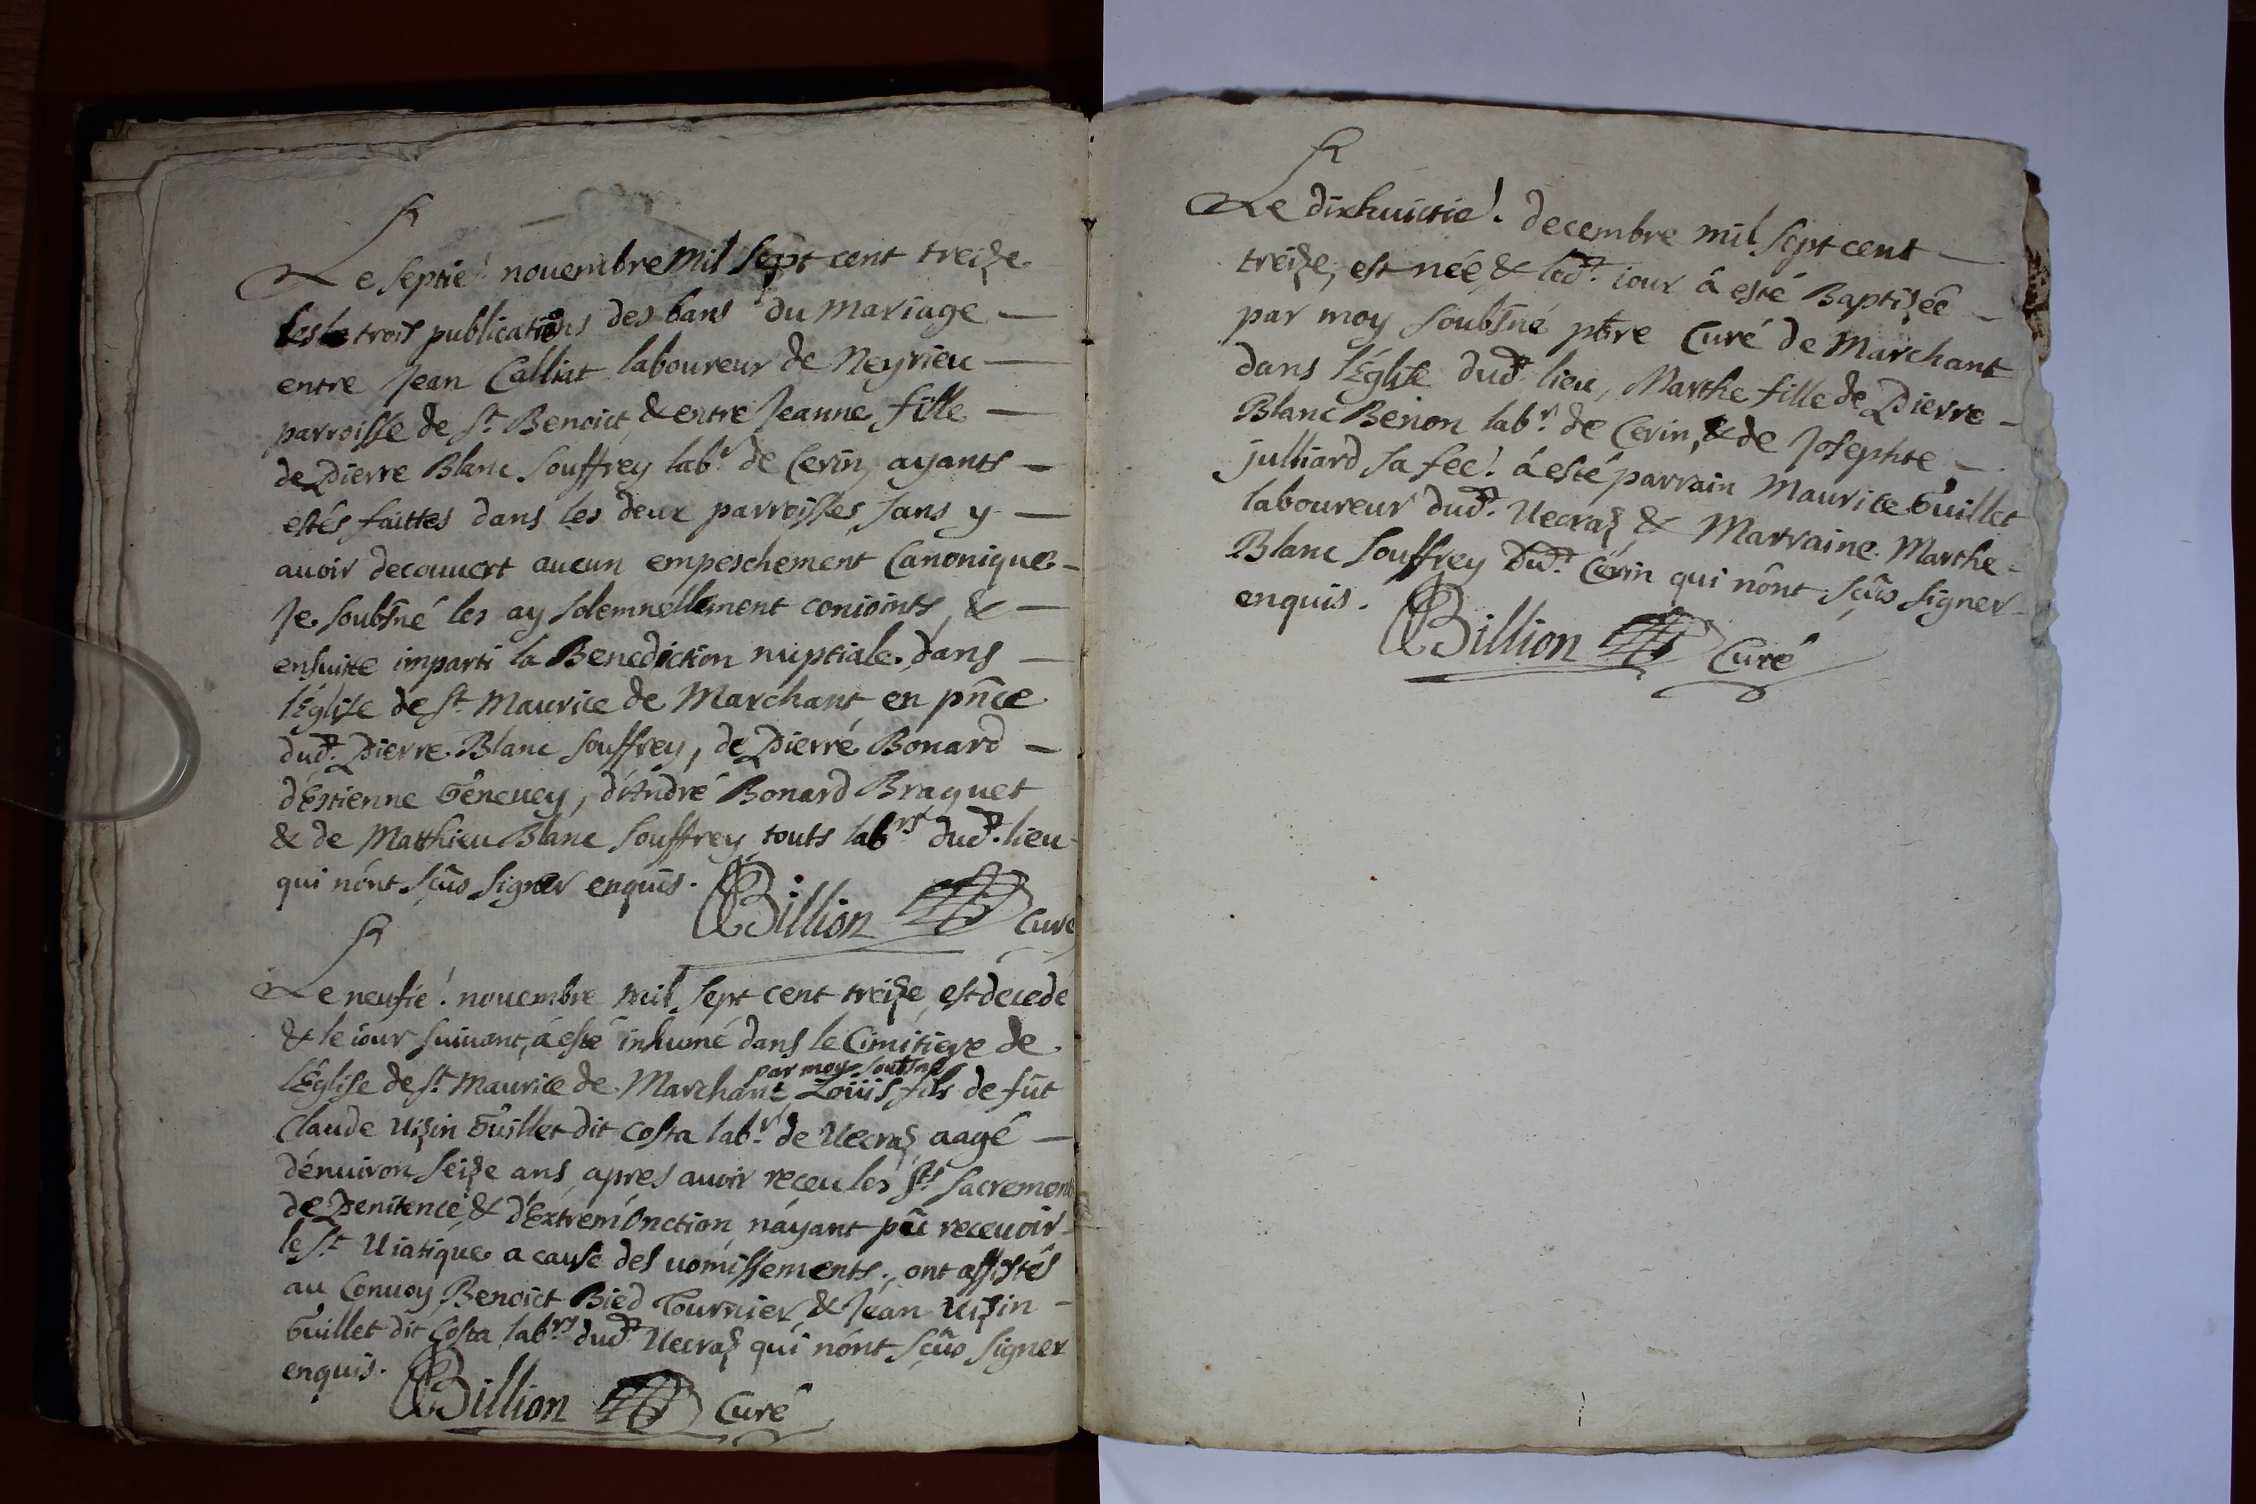 Le septie! nouembre mil sept cent treize
les trois publications des bans du mariage
entre Jean Calliat laboureur de Neyrieu
parroisse de St Benoict, & entre Jeanne fille
de Pierre Blanc souffrey labr de Cerin, ayants
estés faittes dans les deux parroisses, sans y
auoir decouuert aucun empeschement Canonique
Je soubsné les ay solemnellement conioints, &
ensuitte imparti la Benediction nuptiale, dans
l'Église de St Maurice de Marchant en pnce
dud. Pierre Blanc souffrey, de Pierre Bonard
d'Estienne Géneuey, d'André Bonard Braquet
& de Matthieu Blanc souffrey touts labrs dud. lieu
qui nónt sçûs signer enquis. Billion Curé
Le neufié! nouembre mil sept cent treize, est decedé
& le iour suiuant, á esté inhumé dans le Cimitiere de
par moy soubsné
l'Église de St Maurice de Marchant, Loüis fils de fût
Claude Vizin Guillet dit Costa labr de Vecraz aagé
d'énuiron seize ans, apres auoir receu les Sts sacrement
de Penitence & d'Extrém'Onction, n'áyant pû receuoir
le St Viatique a cause des uomissements, ont assistés
au Conuoy Benoict Bied Tournier, & Jean Vizin
Guillet dit Costa labrs dud Vecraz qui nónt sçûs signer
enquis. Billion Curé
Le dixhuictie! decembre mil sept cent
treize, est née & led. iour â esté Baptizéé
par moy soubsné ptre Curé de Marchant
dans l'Église dud. lieu, Marthe fille de Pierre
Blanc Benon labr de Cerin, & de Josephte
julliard sa féé! á esté parrain Maurice Guillet
laboureur dud. Vecraz & Marraine Marthe
Blanc souffrey Dud. Cérin qui nônt sçûs signer
enquis. Billion Curé